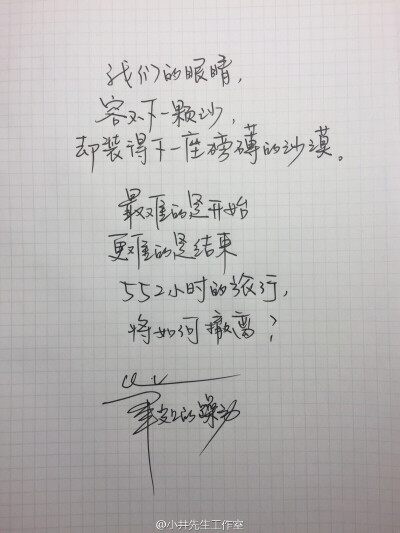 我们的眼睛，
容不下一颗沙，
却装得下一座磅礴的沙漠。
最难的是开始
更难的是结束
552小时的旅行，
将如何撤离？
的躁动
@小井先生工作室